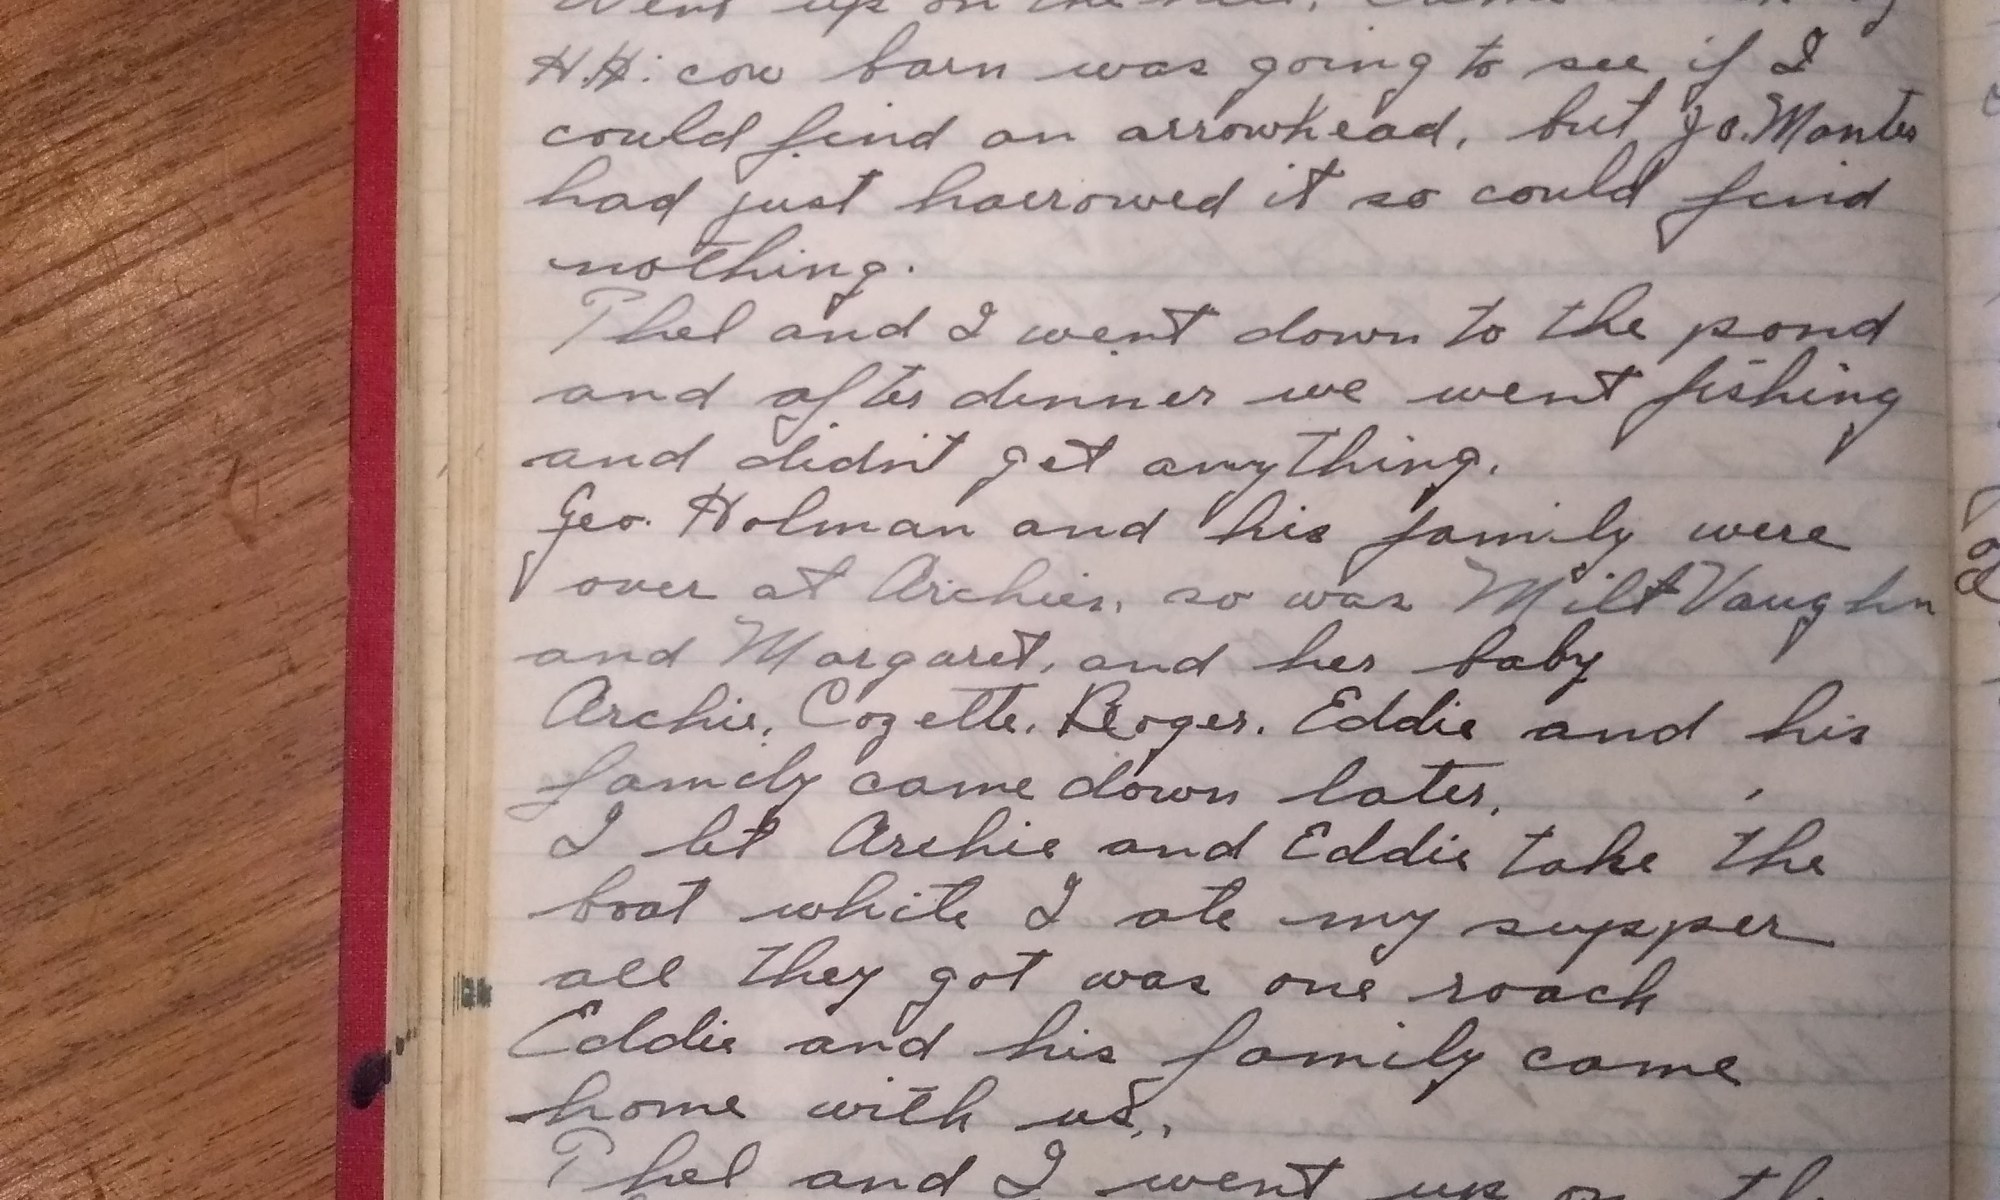 Went up on the hill, came
H.H. cow barn was going to see if I
could find an arrowhead, but Jo. Montes
had just harrowed it so could find
nothing.
Phel and I went down to the pond
and after dinner we went fishing
and didn't get anything.
Geo. Holman and his family were
over at Archies, so was Milt Vaughn
and Margaret, and her baby
Archie, Cozette, Roger, Eddie and his
family came down later,
I let Archie and Eddie take the
boat while I ate my supper
all they got was one roach
Eddie and his family came
home with us..
Phel and I went up on the